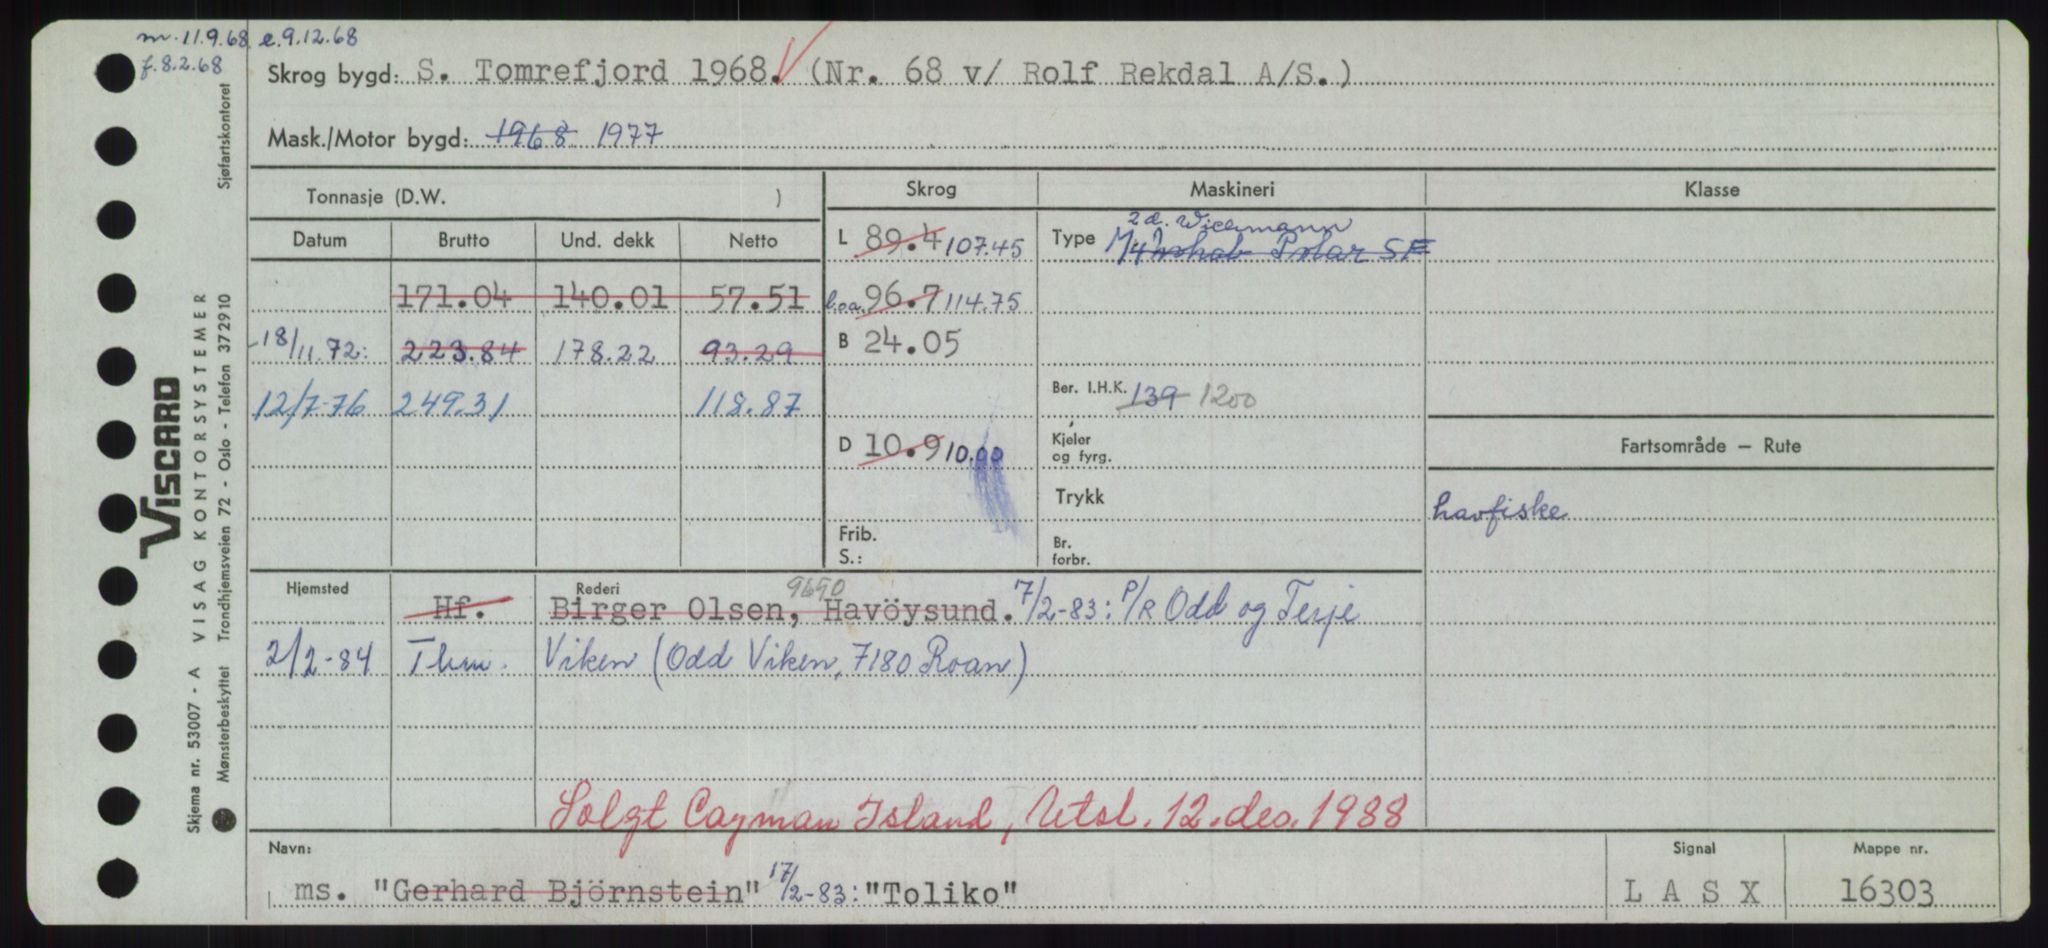 m. 11.9.68 e. 9.12.68
f. 8.2.68
Skrog bygd: S. Tomrefjord 1968. (Nr. 68 v/ Rolf Rekdal A/S.)
Mask./Motor bygd: 1968 1977
Sjøfartskontoret
Tonnasje (D.W. )
Skrog
Maskineri
Klasse
Datum Brutto Und. dekk Netto
L 89.4 107.45
Type 2 d. Wichmann
Polar SF
171.04 140.01 57.51
l.o.a. 96.7 114.75
18/11 72: 223.84 178.22 93.29
B 24.05
12/7-76 249.31 118.87
Ber. I.H.K. 139 1200
D 10.9 10.00
Kjeler og fyrg.
Fartsområde — Rute
Trykk
havfiske
Frib.
S.:
Br. forbr.
Hjemsted
Rederi
Hf. Birger Olsen, 9690 Havöysund. 7/2-83: P/R Odd og Terje
2/2-84 Thm. Viken (Odd Viken, 7180 Roan)
Solgt Cayman Island, Utsl. 12. des. 1988
Navn:
ms. "Gerhard Björnstein" 17/2-83: "Toliko"
Signal
L A S X
Mappe nr.
16303
VISCARD
VISAG KONTORSYSTEMER
Skjema nr. 53007 - A
Mønsterbeskyttet Trondhjemsveien 72 - Oslo - Telefon 372910